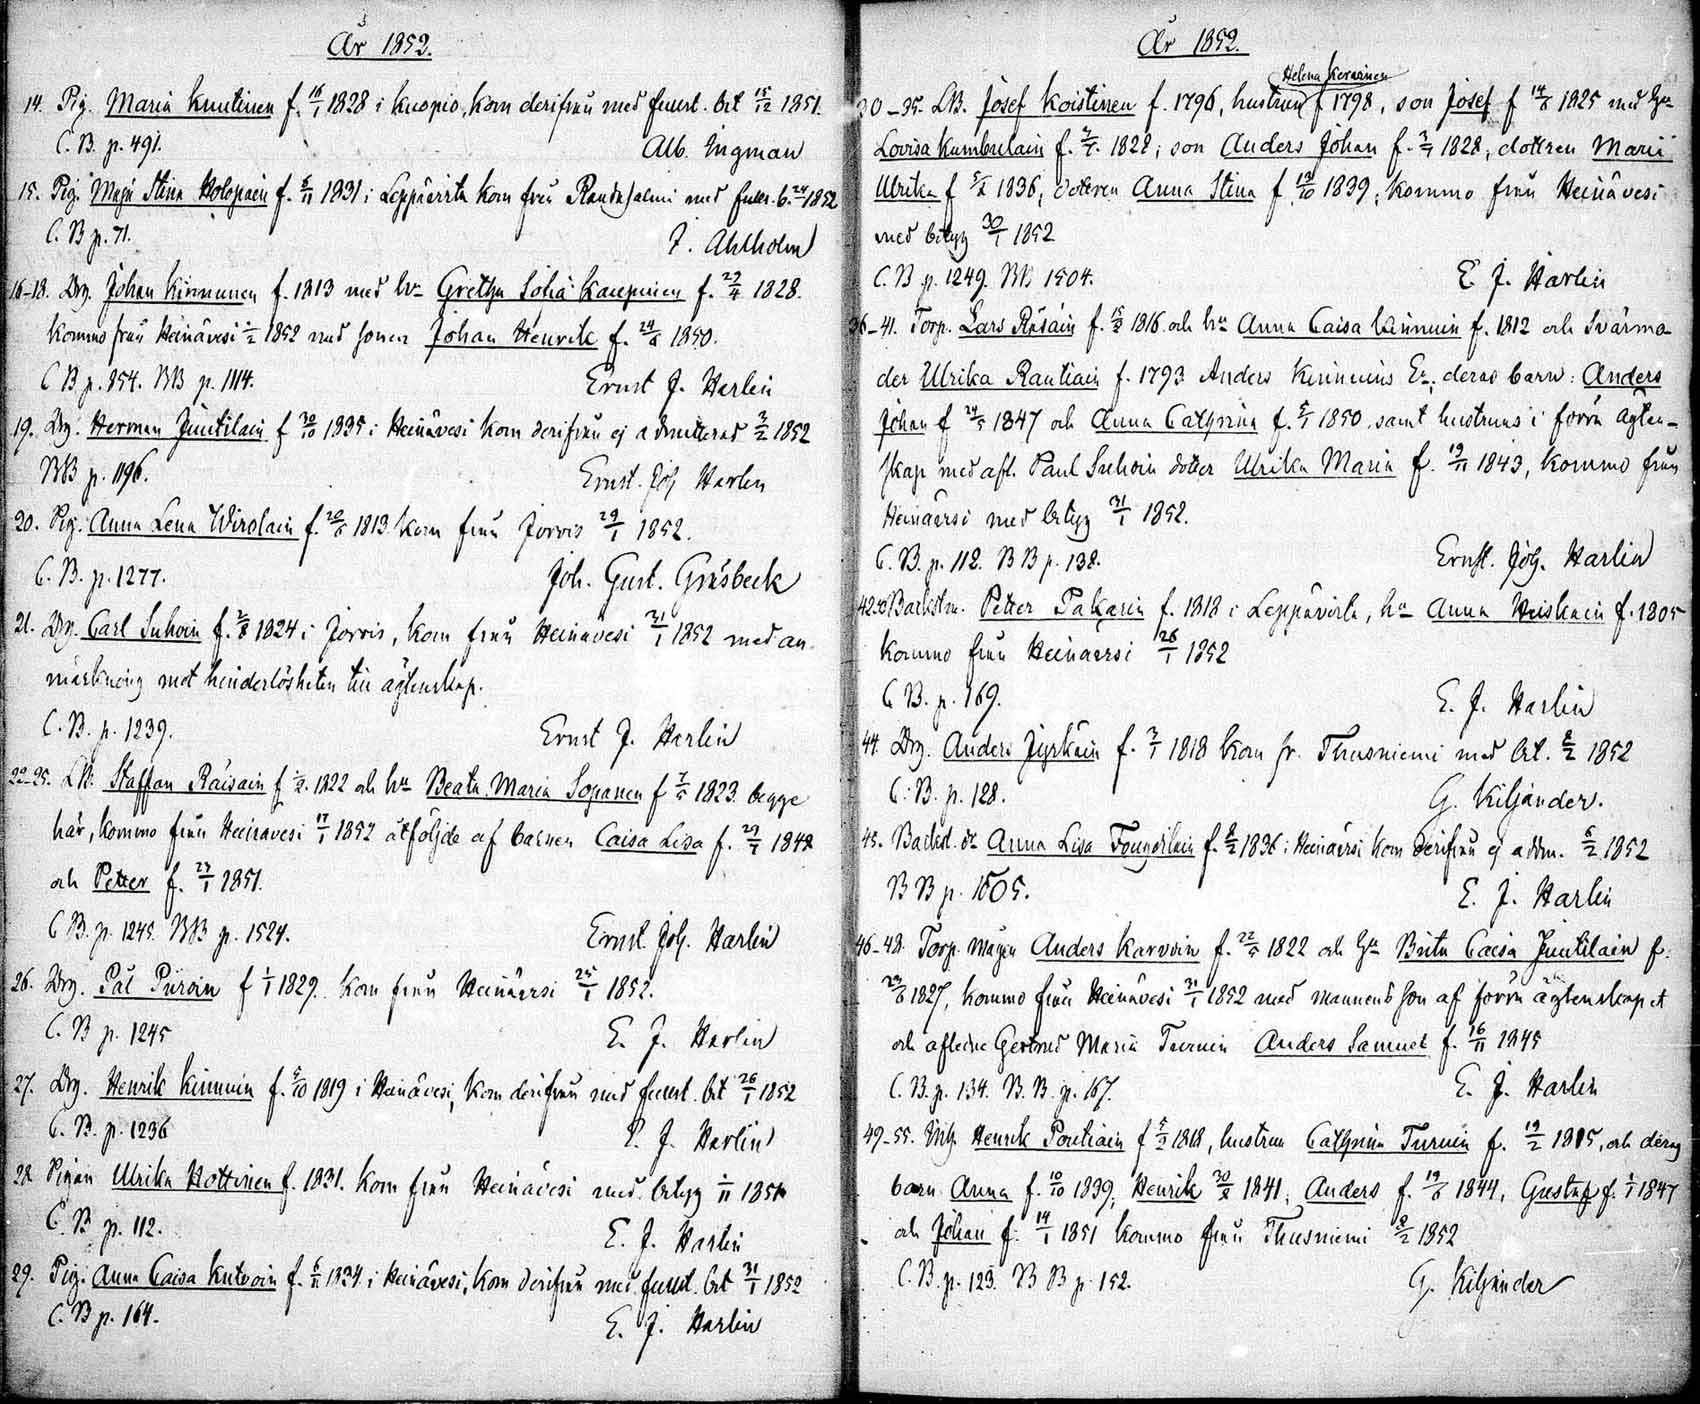 År 1852.
14. Pig. Maria Knutinen f. 16/1 1828 i Kuopio, kom derifrån med fullst. bet 15/12 1851.
C. B. p. 491. Alb. Ingman
15. Pig. Maja Stina Holopain f. 5/11 1831 i Leppävirta kom från Randasalmi med b. 24/1 1852
C. B p. 71. J. Ahlholm
16-18. Drg. Johan Kinnunen f. 1813 med hu Gretha Sofia Kauppinen f. 29/4 1828.
kommo från Heinävesi 1852 med sonen Johan Henrik f. 24/6 1850.
C B p. 854. BB p. 1114. Ernst J. Harlin
19. Drg. Herman Juutilain f 30/10 1835 i Heinävesi kom derifrån ej admitterad 2/2 1852
BB p. 1196. Ernst. Joh Harlin
20. Pig. Anna Lena Wirolain f. 20/6 1813 kom från Jorois 29/1 1852.
C. B. p. 1277. Joh. Gust. Gråsbeck
21. Drg. Carl Suhoin f. 2/8 1824 i Jorois, kom från Heinävesi 31/1 1852 med an-
märkning mot hinderlösheten till ägtenskap.
C. B. p. 1239. Ernst J. Harlin
22-25. LB. Staffan Räisäin f 1822 och hu Beata Maria Sopanen f 7/5 1823. begge
här, kommo från Heinävesi 17/1 1852 åtföljde af barnen Caisa Lisa f. 29/1 1848
och Petter f. 23/1 1851.
C B. p. 1245. BB p. 1524. Ernst. Joh. Harlin
26. Drg. Pål Puroin f 1/1 1829. kom från Heinävesi 25/1 1852.
C. B p. 1245 E. J. Harlin
27. Drg. Henrik Kinnuin f. 5/10 1819 i Heinävesi, kom derifrån med fullst. bet 26/1 1852
C. B. p. 1236 E. J. Harlin
28. Pigan Ulrika Hottinen f. 1831. kom från Heinävesi med betyg 1/11 1851
C. B p. 112. E. J. Harlin
29. Pig. Anna Caisa Kutvoin f. 5/11 1834 i Heinävesi, kom derifrån med fullst. bet 31/1 1852
C. B p. 164. E. J. Harlin
År 1852.
Helena Kervinen
30-35. LB. Josef Koistinen f. 1796, hustrun f 1798, son Josef f 14/6 1825 med hu
Lovisa Kumbulain f. 1828; son Anders Johan f. 1828, dottren Maria
Ulrika f 1836, dottren Anna Stina f 19/10 1839; kommo från Heinävesi
med betyg 30/1 1852
C B p. 1249. BB 1504. E. J. Harlin
36-41. Torp. Lars Räsäin f. 1816 och hu Anna Caisa Kinnuin f. 1812 och Svärmo-
der Ulrika Rautiain f. 1793 Anders Kinnuins E:a; deras barn: Anders
Johan f 24/5 1847 och Anna Cathrina f. 5/1 1850 samt hustruns i förra ägten-
skap med afl. Paul Suhoin dotter Ulrika Maria f. 19/11 1843, kommo från
Heinävesi med betyg 31/1 1852.
C. B. p. 112. BB p. 138. Ernst. Joh. Harlin
42-43 Backstm. Petter Pakarin f. 1818 i Leppävirta, hu Anna Heiskain f. 1805
kommo från Heinävesi 26/1 1852
C B. p. 169. E. J. Harlin
44. Drg. Anders Jyrkäin f. 2/1 1818 kom fr. Thusniemi med bet. 8/2 1852
C. B. p. 128. G. Kiljander.
45. Backst. dr Anna Lisa f. 2/2 1836 i Heinävesi kom derifrån ej adm. 5/2 1852
B B p. 1505. E. J. Harlin
46-48. Torp. mågen Anders Karvoin f. 22/5 1822 och hu Brita Caisa Juutilain f.
23/6 1827, kommo från Heinävesi 31/1 1852 med mannens son af förra ägtenskapet
och aflidne Gertrud Maria Turuin Anders Samuel f. 16/11 1845
C. B. p. 134. B. B. p. 167. E. J. Harlin
49-55. Inh. Henrik Poutiain f 5/9 1818, hustrun Cathrina Turuin f. 19/2 1815, och deras
barn Anna f. 10/10 1839, Henrik 30/8 1841, Anders f. 19/6 1844, Gustaf f. 1/1 1847
och Johan f. 14/1 1851 kommo från Thusniemi 8/2 1852
C. B. p. 123. B B p. 152. G. Kiljander